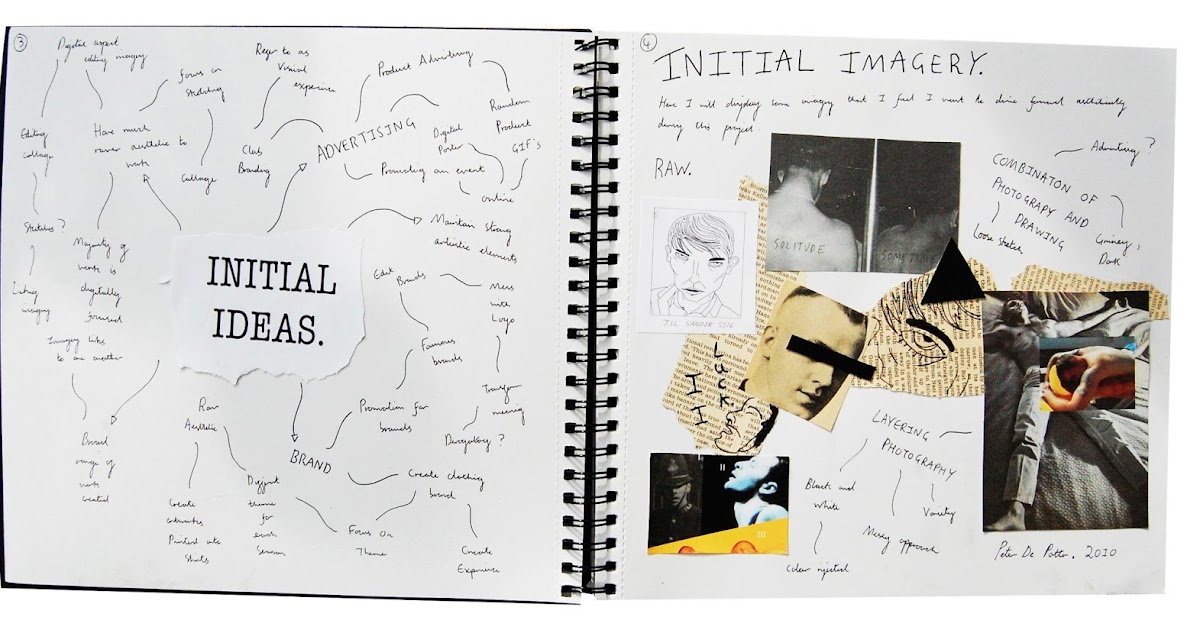 3
Digital aspect
editing imagery
Focus on
sketching
Refer to as
Visual
experience
Product Advertising
Random
Product
GIF's
Editing
collage
Have much
rawer aesthetic to
work
Collage
Club
Branding
ADVERTISING
Digital
Poster
Promoting an event
online
Sketches?
Linking
imagery
Majority of
work is
digitally
focused
Imagery links
to one another
Broad
range of
work
created
INITIAL
IDEAS.
Maintain strong
artistic elements
Edit
Brands
Mess
with
Logo
Famous
brands
Transform
meaning
Derogatory?
Promotion for
brands
BRAND
Raw
Aesthetic
Create
Printed onto
shirts
Different
themes
for
each
season
Focus On
Theme
Create clothing
brand
Create
Experience
4
INITIAL IMAGERY.
Here I will display some imagery that I feel I want to drive forward
during this project
RAW.
SOLITUDE
SOMETIME
JIL SANDER SS16
LUCK
II
III
COMBINATON OF
PHOTOGRAPY AND
DRAWING
Advertising?
Loose sketch
Grimey,
Dark
LAYERING
PHOTOGRAPHY
Black and
White
Colour injected
Messy approach
Variety
Peter De Potter. 2010